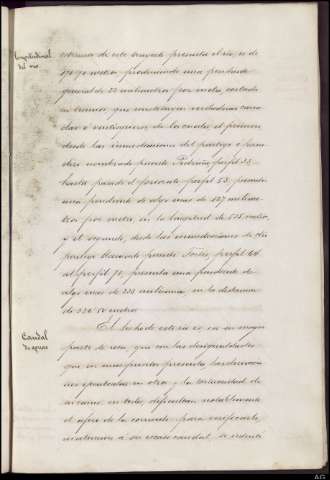 Longitudinal
del rio.
extremos de este trayecto presenta el rio, es de
170'70 metros produciendo una pendiente
general de 22 milimetros por metro, cortada
en tramos que constituyen verdaderas casca
das o ventisqueros de los cuales el primero
desde las inmediaciones del parage o pun
nombrado puente perfil 28
hasta pasado el presente perfil 53, presenta
una pendiente de algo mas de 127 milime
tros por metro, en la longitud de 515 metros,
y el segundo, desde las inmediaciones de
llamado puente perfil 64
al perfil 70, presenta una pendiente de
algo mas de 221 milimetros, en la distancia
de 326'50 metros.
Caudal
de aguas
El lecho de este rio es en su mayor
parte de roca, que con las desigualdades
que en unos puntos presenta, las
en otros y la tortuosidad de
su cauce, en todos, dificultan notablemente
el aforo de la corriente; para verificarlo,
a su escaso caudal, se